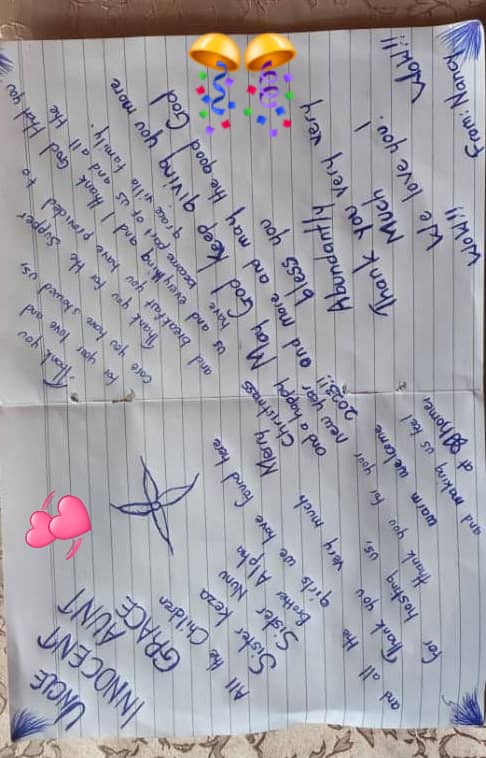 UNCLE
INNOCENT
AUNT
GRACE
All the Children
Sister Keza
Sister Nunu
Brother Alpha
and all the girls we have found here
Thank you very much
for hosting us,
thank you for your
warm welcome
and making us feel
at home
Merry
Christmas
and a happy
new year
2023!!
Thank you
for your love and
care you have showed us,
Thank you for the supper
and breakfast you have provided to
us and everything and I thank God that you
have become part of us and all the
grace villa family.
May God keep giving you more
and more and may the good God
bless you
Abundantly
Thank you very very
Much
We love you!
Wow!! Wow!!!
From: Nancy